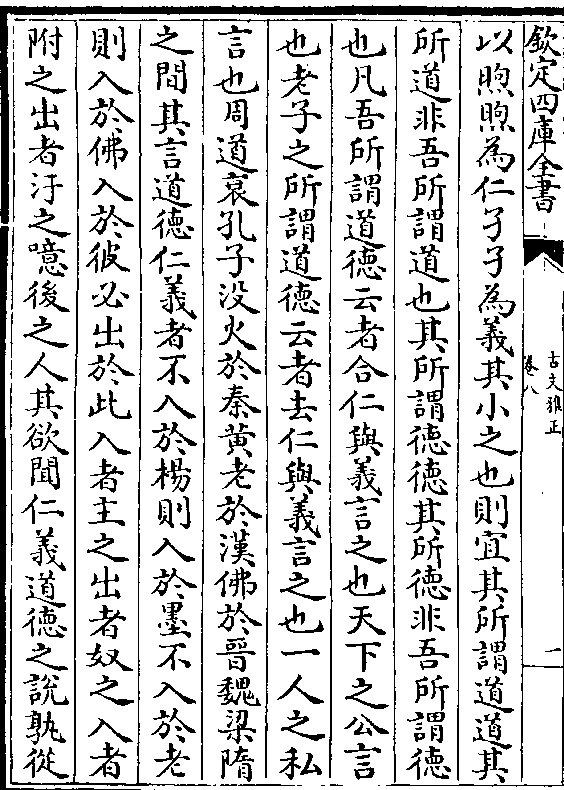 欽定四庫全書
古文雅正
卷八
一
以煦煦為仁孑孑為義其小之也則宜其所謂道道其
所道非吾所謂道也其所謂德德其所德非吾所謂德
也凡吾所謂道德云者合仁與義言之也天下之公言
也老子之所謂道德云者去仁與義言之也一人之私
言也周道衰孔子没火於秦黄老於漢佛於晉魏梁隋
之間其言道德仁義者不入於楊則入於墨不入於老
則入於佛入於彼必出於此入者主之出者奴之入者
附之出者汙之噫後之人其欲聞仁義道德之說孰從